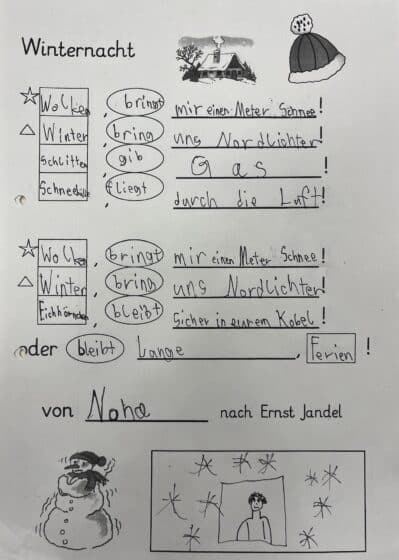 Winternacht
Wolken, bringt mir einen Meter Schnee!
Winter, bring uns Nordlichter!
Schlitten gib Gas!
Schneebälle fliegt durch die Luft!
Wolken, bringt mir einen Meter Schnee!
Winter, bring uns Nordlichter!
Eichhörnchen, bleibt sicher in eurem Kobel!
oder bleibt Lange, Ferien!
von Noha nach Ernst Jandel